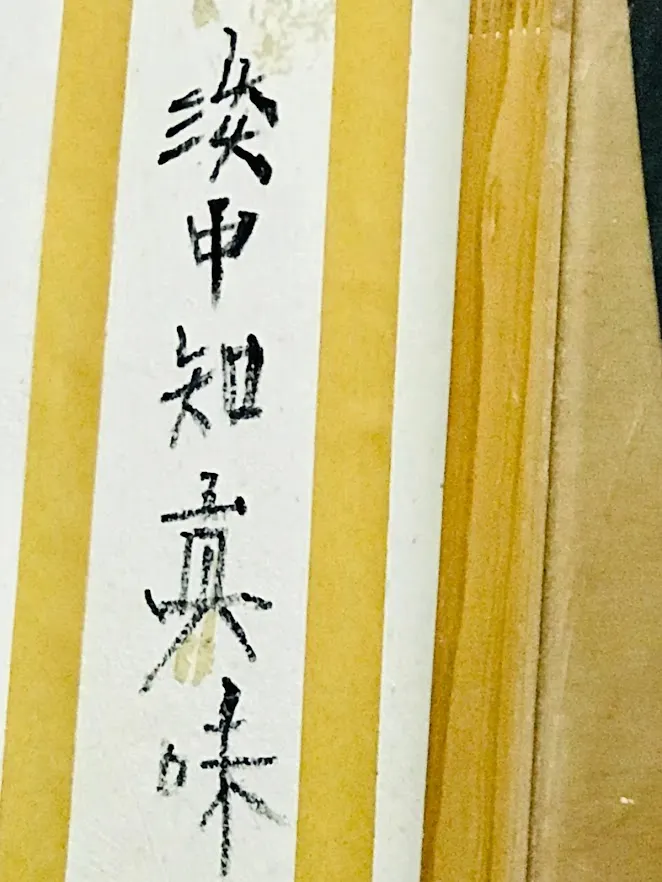 淡中知真味